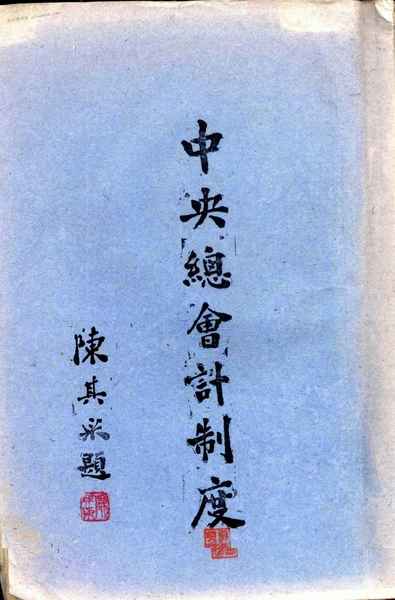 中央總會計制度
陳其采題